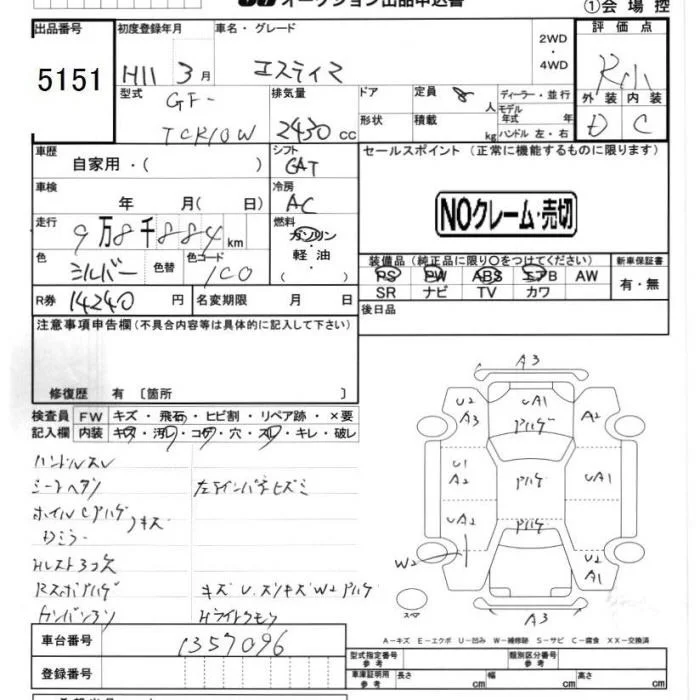 オークション出品申込書
①会場控
出品番号
5151
初度登録年月
車名・グレード
H11 3月
エスティマ
2WD
・
4WD
評価点
R小
外装 内装
D C
型式
GF-
TCR10W
排気量
2430 cc
ドア
形状
定員 8 人
積載 kg
ディーラー・並行
モデル
年式 年
ハンドル 左・右
車歴
自家用・( )
シフト
CAT
セールスポイント (正常に機能するものに限ります)
NOクレーム・売切
車検
年 月( 日)
冷房
AC
走行
9万8千884km
燃料
ガソリン
・
軽油
( )
色
シルバー
色替
色コード
1C0
装備品(純正品に限り○をつけてください)
PS PW ABS エアB AW
SR ナビ TV カワ
新車保証書
有・無
R券 14240 円
名変期限 月 日
後日品
注意事項申告欄(不具合内容等は具体的に記入して下さい)
修復歴 有 〔箇所 〕
検査員
記入欄
FW キズ・飛石・ヒビ割・リペア跡・×要
内装 キズ・汚レ・コゲ・穴・スレ・キレ・破レ
ハンドルスレ
シートヘタリ
左下インパネヒズミ
ホイルCアハゲ キズ
Dミラー
Hレスト3コ欠
Rスポアハゲ
キズU.スリキズW2アハゲ
Hライトクモリ
A3
U2
A3
UA1
アハゲ
A2
U1
A2
アハゲ
UA1
UA2
アハゲ
W2
U2
A1
スペア
A3
A－キズ E－エクボ U－凹み W－補修跡 S－サビ C－腐食 XX－交換済
車台番号
1357096
登録番号
型式指定番号
参考
類別区分番号
参考
車庫証明記載
参考
長さ cm
幅 cm
高さ cm